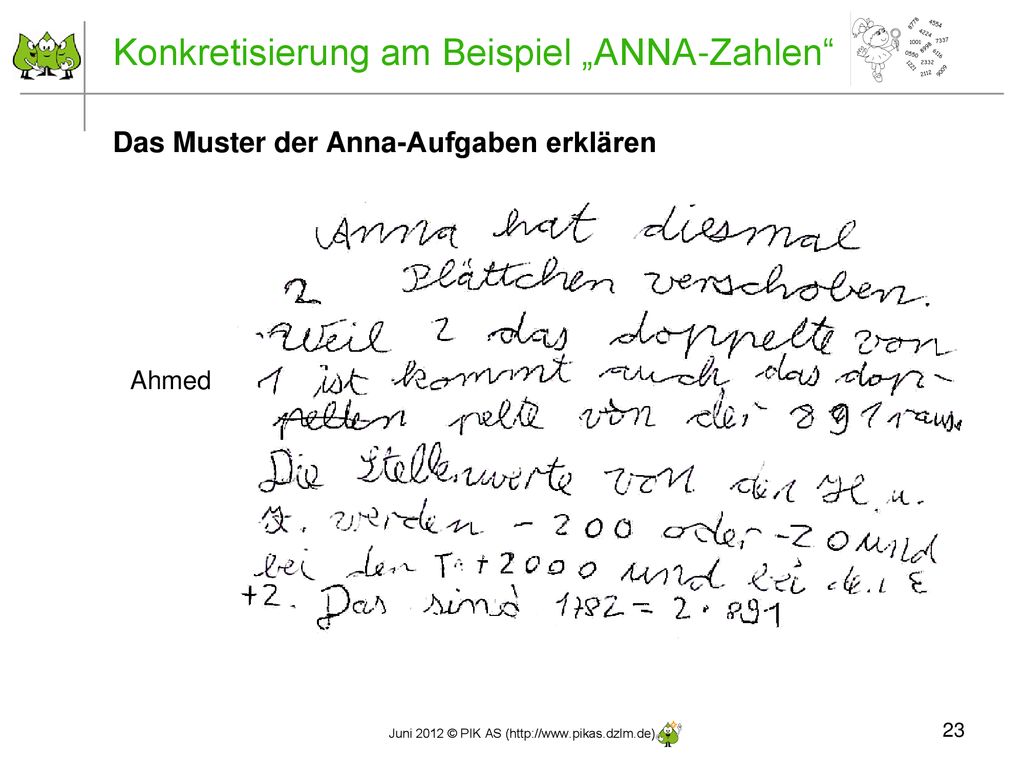 Konkretisierung am Beispiel „ANNA-Zahlen“
6776
4554
4224
1001
7337
8998
0550
6116
2332
1221
2112
9009
Das Muster der Anna-Aufgaben erklären
Anna hat diesmal
2 Plättchen verschoben.
Weil 2 das doppelte von
Ahmed
1 ist kommt auch das dop-
pelten pelte von der 891 raus.
Die Stellenwerte von den H u.
Z. werden -200 oder -20 und
bei den T. +2000 und bei den E
+2. Das sind 1782 = 2·891
Juni 2012 © PIK AS (http://www.pikas.dzlm.de)
23